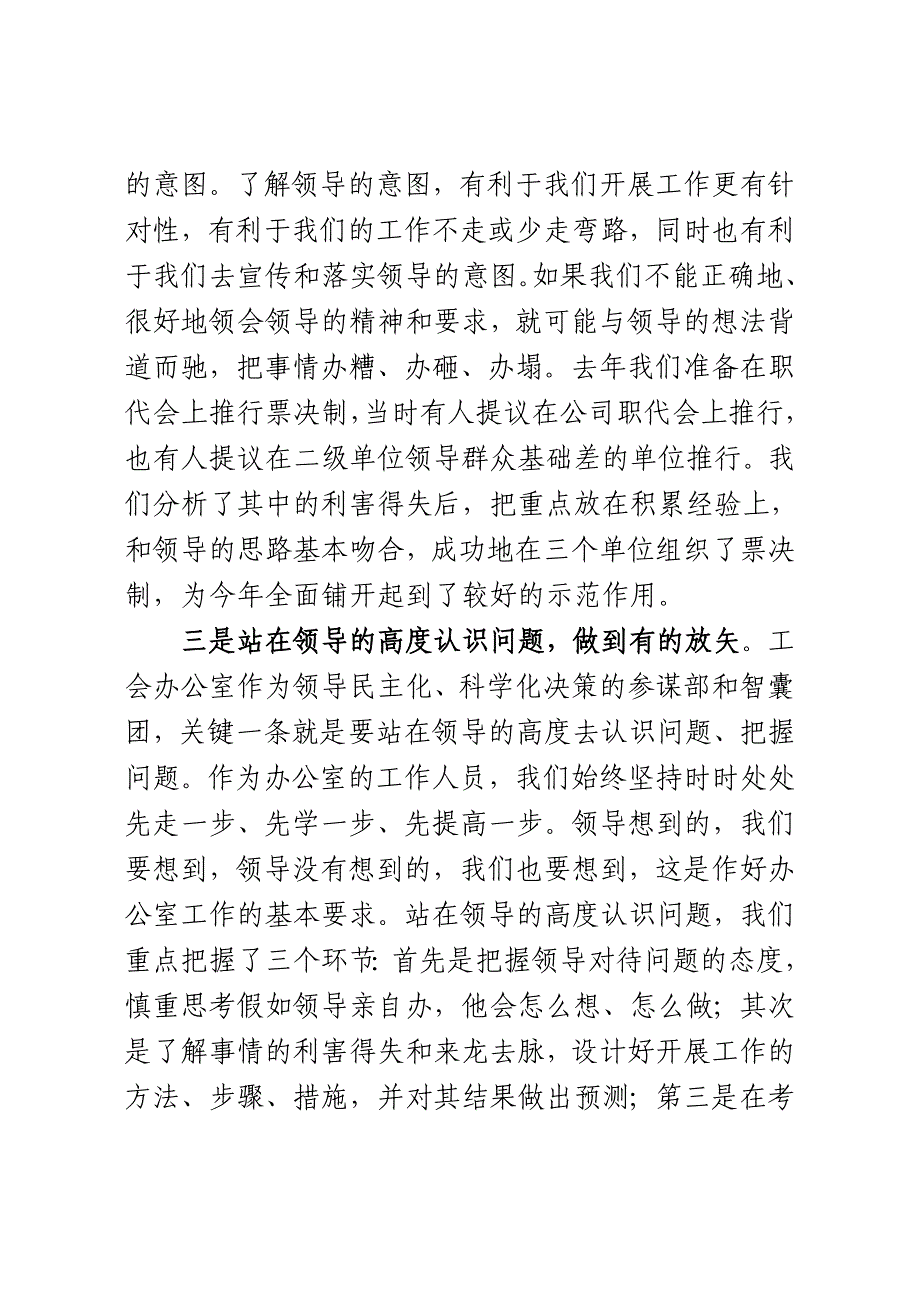 的意图。了解领导的意图，有利于我们开展工作更有针
对性，有利于我们的工作不走或少走弯路，同时也有利
于我们去宣传和落实领导的意图。如果我们不能正确地、
很好地领会领导的精神和要求，就可能与领导的想法背
道而驰，把事情办糟、办砸、办塌。去年我们准备在职
代会上推行票决制，当时有人提议在公司职代会上推行，
也有人提议在二级单位领导群众基础差的单位推行。我
们分析了其中的利害得失后，把重点放在积累经验上，
和领导的思路基本吻合，成功地在三个单位组织了票决
制，为今年全面铺开起到了较好的示范作用。
三是站在领导的高度认识问题，做到有的放矢。工
会办公室作为领导民主化、科学化决策的参谋部和智囊
团，关键一条就是要站在领导的高度去认识问题、把握
问题。作为办公室的工作人员，我们始终坚持时时处处
先走一步、先学一步、先提高一步。领导想到的，我们
要想到，领导没有想到的，我们也要想到，这是作好办
公室工作的基本要求。站在领导的高度认识问题，我们
重点把握了三个环节：首先是把握领导对待问题的态度，
慎重思考假如领导亲自办，他会怎么想、怎么做；其次
是了解事情的利害得失和来龙去脉，设计好开展工作的
方法、步骤、措施，并对其结果做出预测；第三是在考